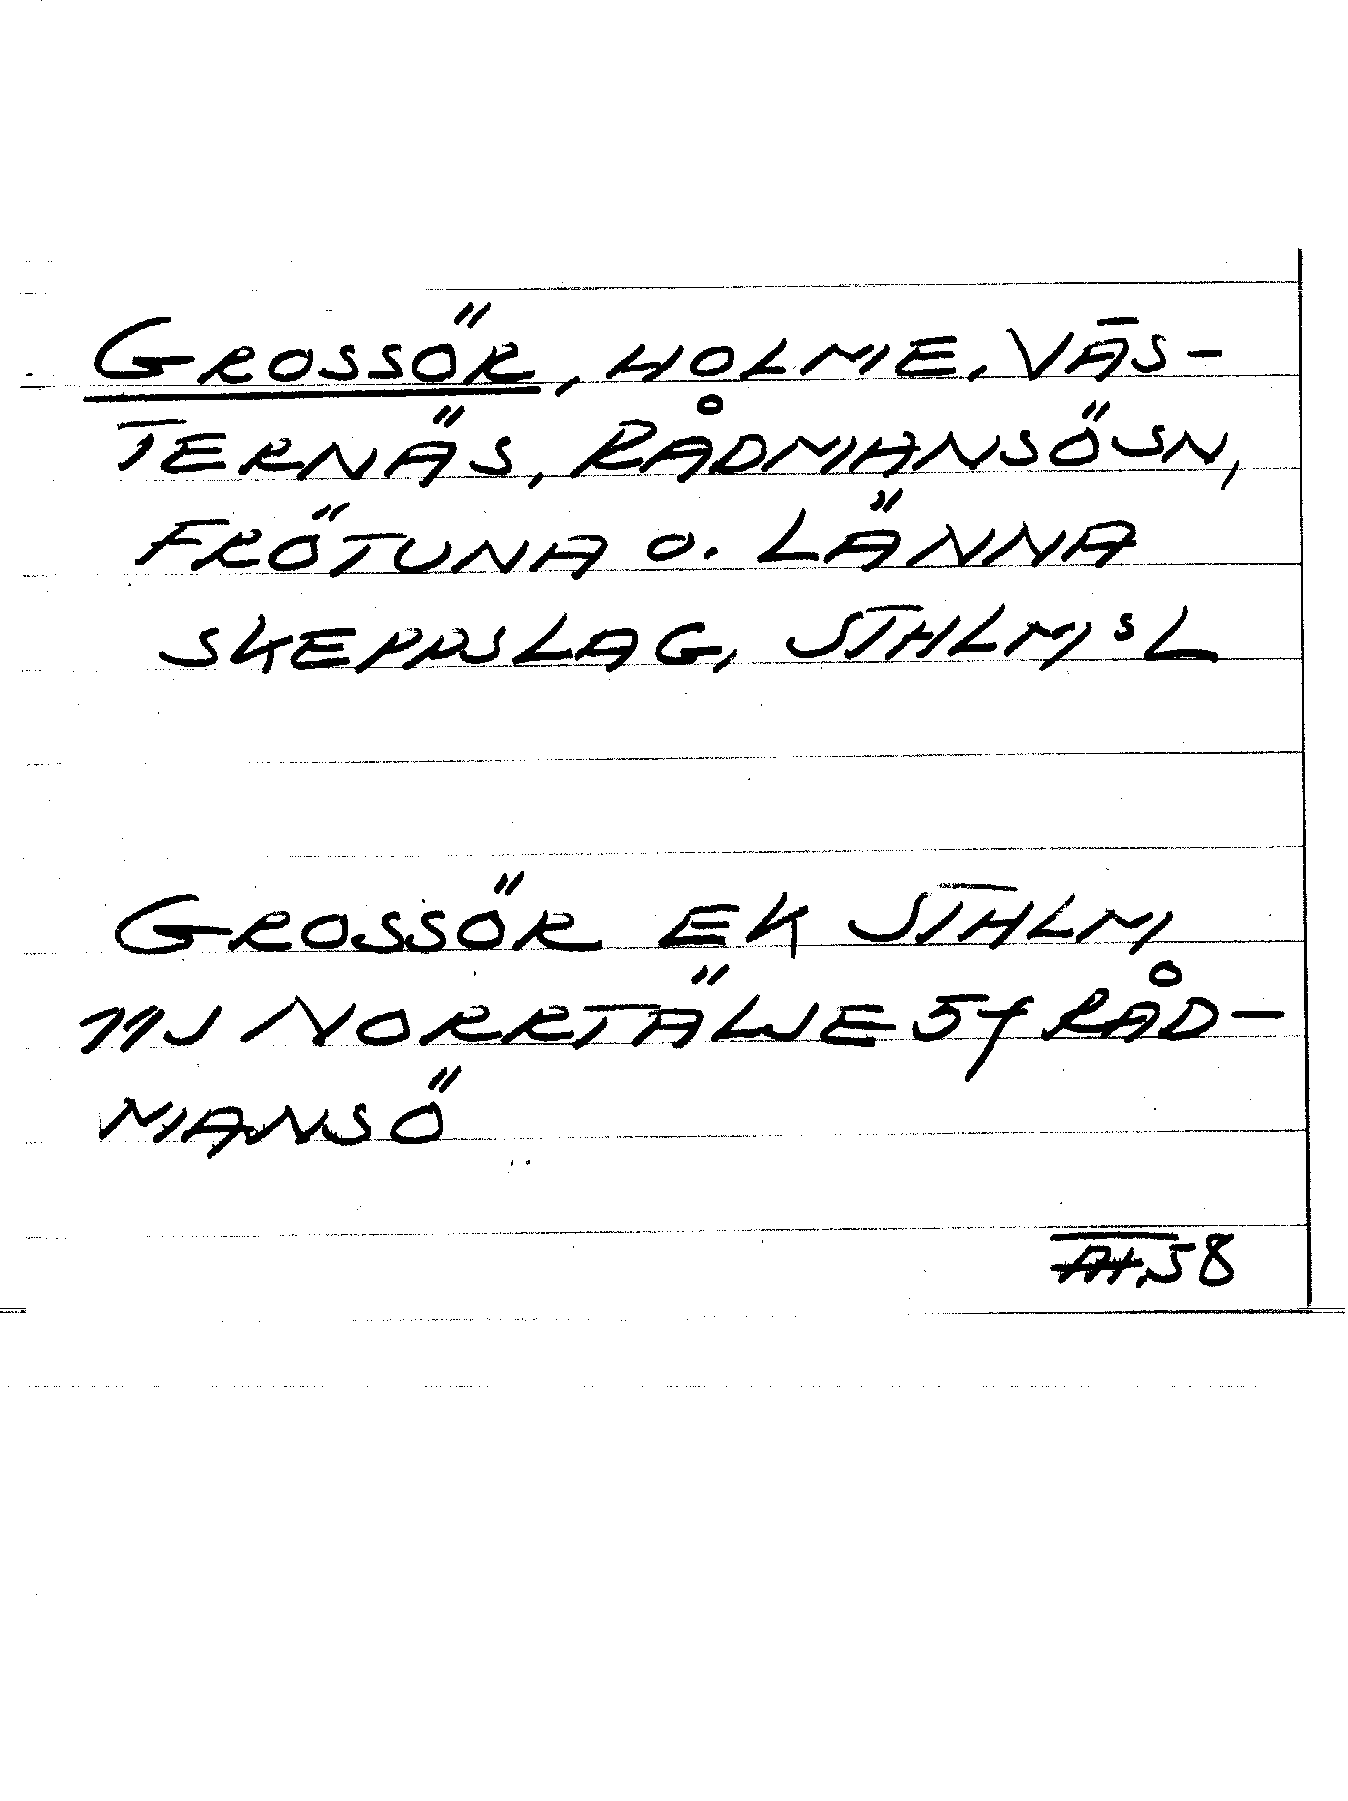 GROSSÖR, HOLME. VÄS-
TERNÄS, RÅDMANSÖSN,
FRÖTUNA O. LÄNNA
SKEPPSLAG, STHLMSL
GROSSÖR EK STHLM
11J NORRTÄLJE 5f RÅD-
MANSÖ
58